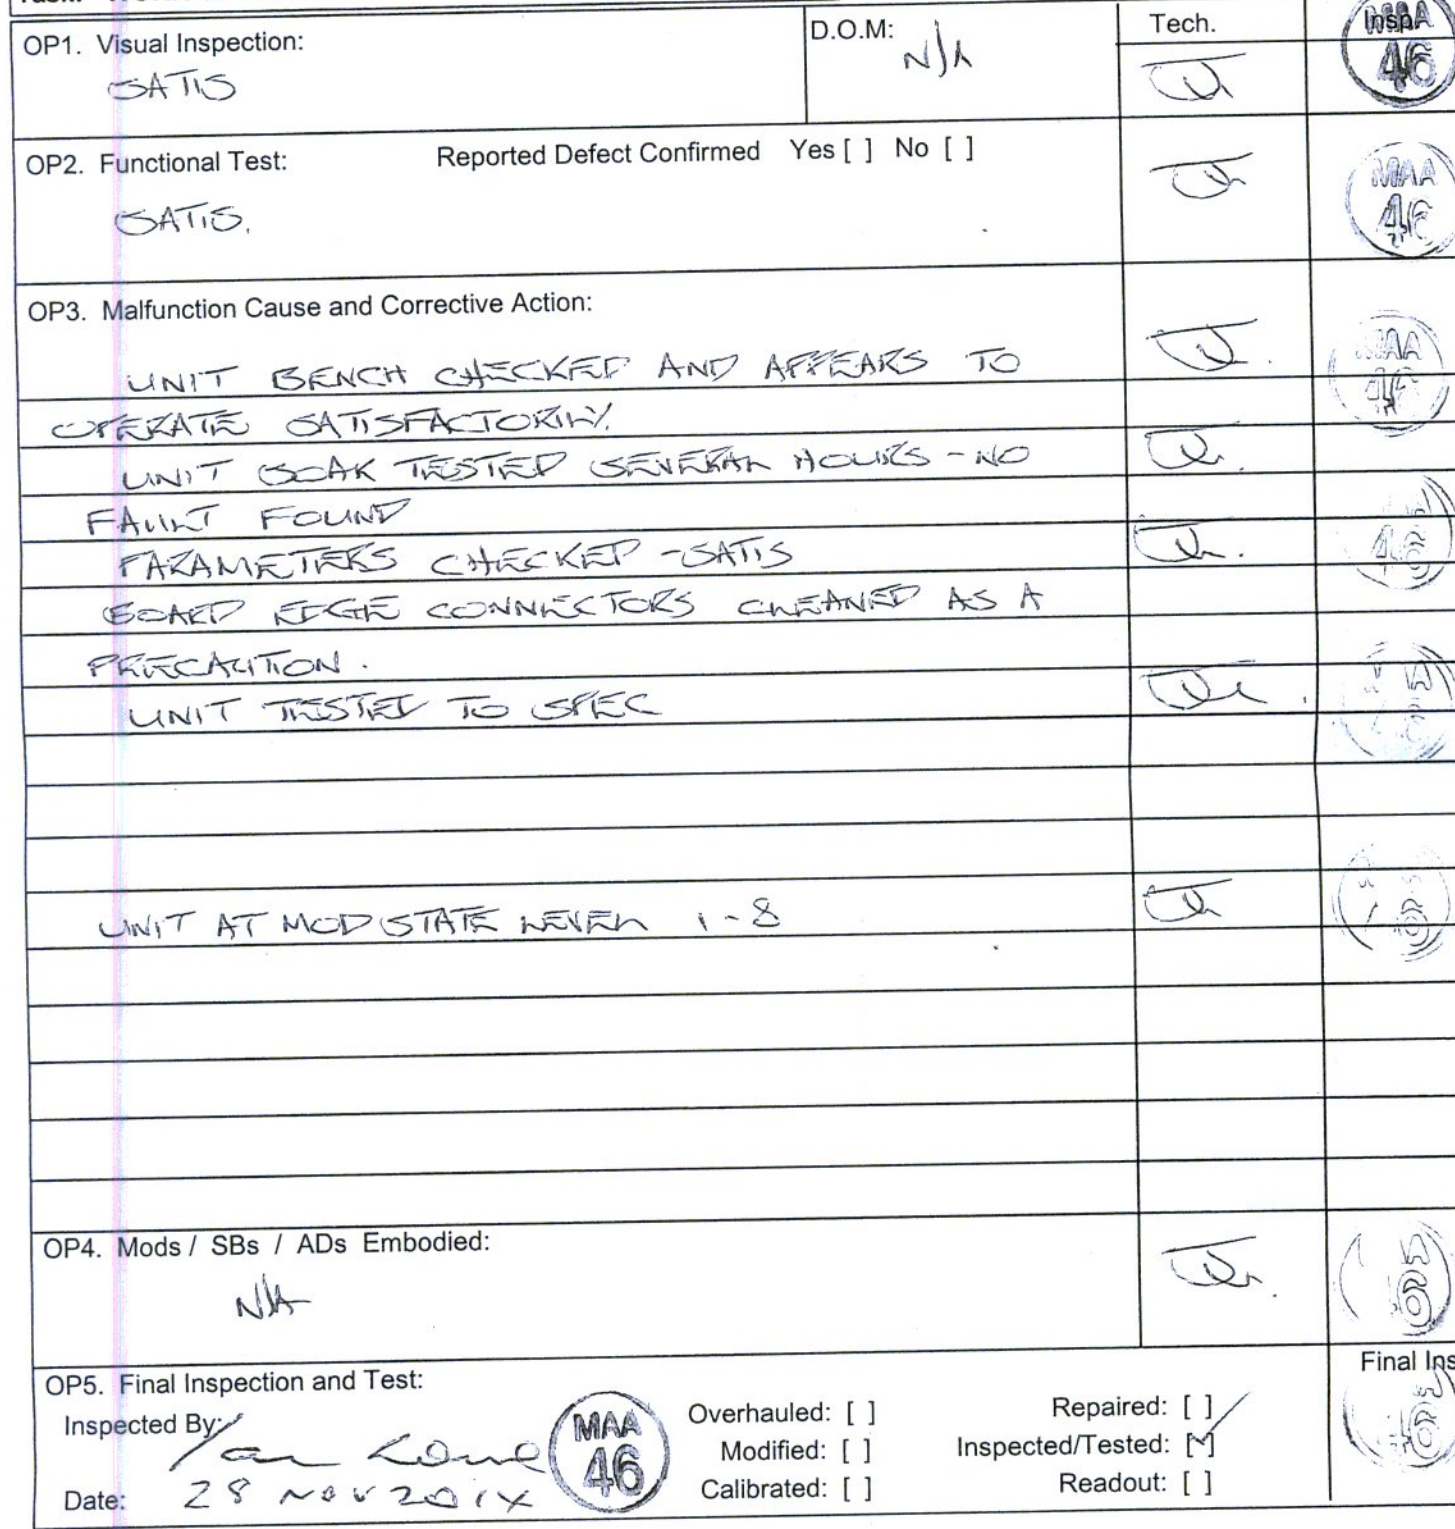 OP1. Visual Inspection:
SATIS
D.O.M:
N/A
Tech.
Insp
MAA
46
OP2. Functional Test: Reported Defect Confirmed Yes [ ] No [ ]
SATIS.
MAA
46
OP3. Malfunction Cause and Corrective Action:
UNIT BENCH CHECKED AND APPEARS TO
OPERATE SATISFACTORILY.
UNIT SOAK TESTED SEVERAL HOURS - NO
FAULT FOUND
PARAMETERS CHECKED - SATIS
BOARD EDGE CONNECTORS CLEANED AS A
PRECAUTION.
UNIT TESTED TO SPEC
UNIT AT MOD STATE LEVEL 1-8
OP4. Mods / SBs / ADs Embodied:
N/A
OP5. Final Inspection and Test:
Final Ins
Inspected By:
MAA
46
Overhauled: [ ] Repaired: [ ]
Modified: [ ] Inspected/Tested: [✓]
Calibrated: [ ] Readout: [ ]
Date: 28 NOV